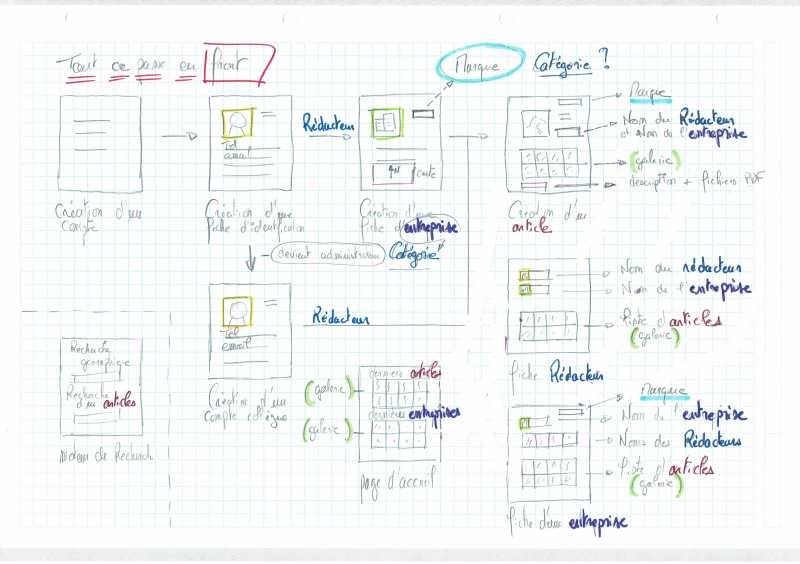 Tout ce passe en front
Marque
Catégorie ?
Tel
email
Rédacteur
carte
Marque
Nom du Rédacteur
et Nom de l'entreprise
(galerie)
description + fichiers PDF
Création d'un
compte
Création d'une
fiche d'identification
Création d'une
fiche d'entreprise
Création d'un
article
devient administrateur
Catégorie
Tel
email
Rédacteur
Création d'un
compte collègue
Nom du rédacteur
Nom de l'entreprise
liste d'articles
(galerie)
fiche Rédacteur
Recherche
géographique
Recherche
d'un articles
moteur de Recherche
(galerie)
derniers articles
(galerie)
dernières entreprises
page d'accueil
Marque
Nom de l'entreprise
Noms des Rédacteurs
liste d'articles
(galerie)
fiche d'une entreprise